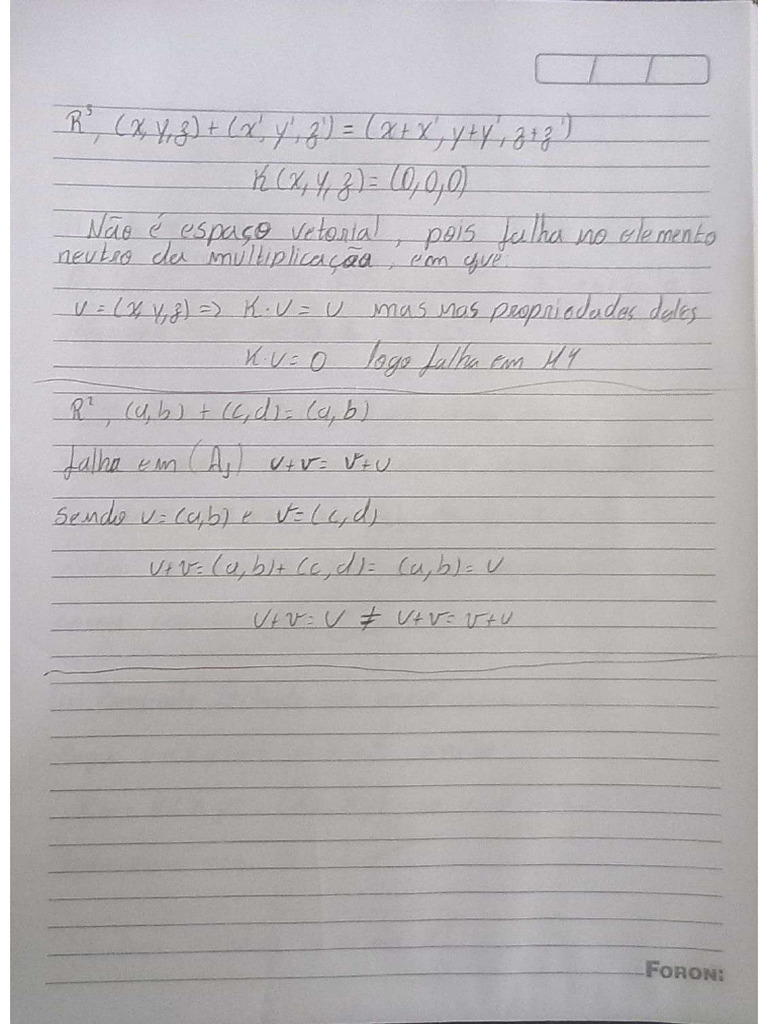 R³, (x,y,z) + (x', y', z') = (x+x', y+y', z+z')
K(x,y,z) = (0,0,0)
Não é espaço vetorial, pois falha no elemento
neutro da multiplicação, em que
v = (x,y,z) => K·v = v mas nas propriedades deles
K·v = 0 logo falha em M4
R², (a,b) + (c,d) = (a,b)
falha em (A₁) u+v = v+u
Sendo u = (a,b) e v = (c,d)
u+v = (a,b) + (c,d) = (a,b) = u
u+v = u ≠ u+v = v+u
FORONI